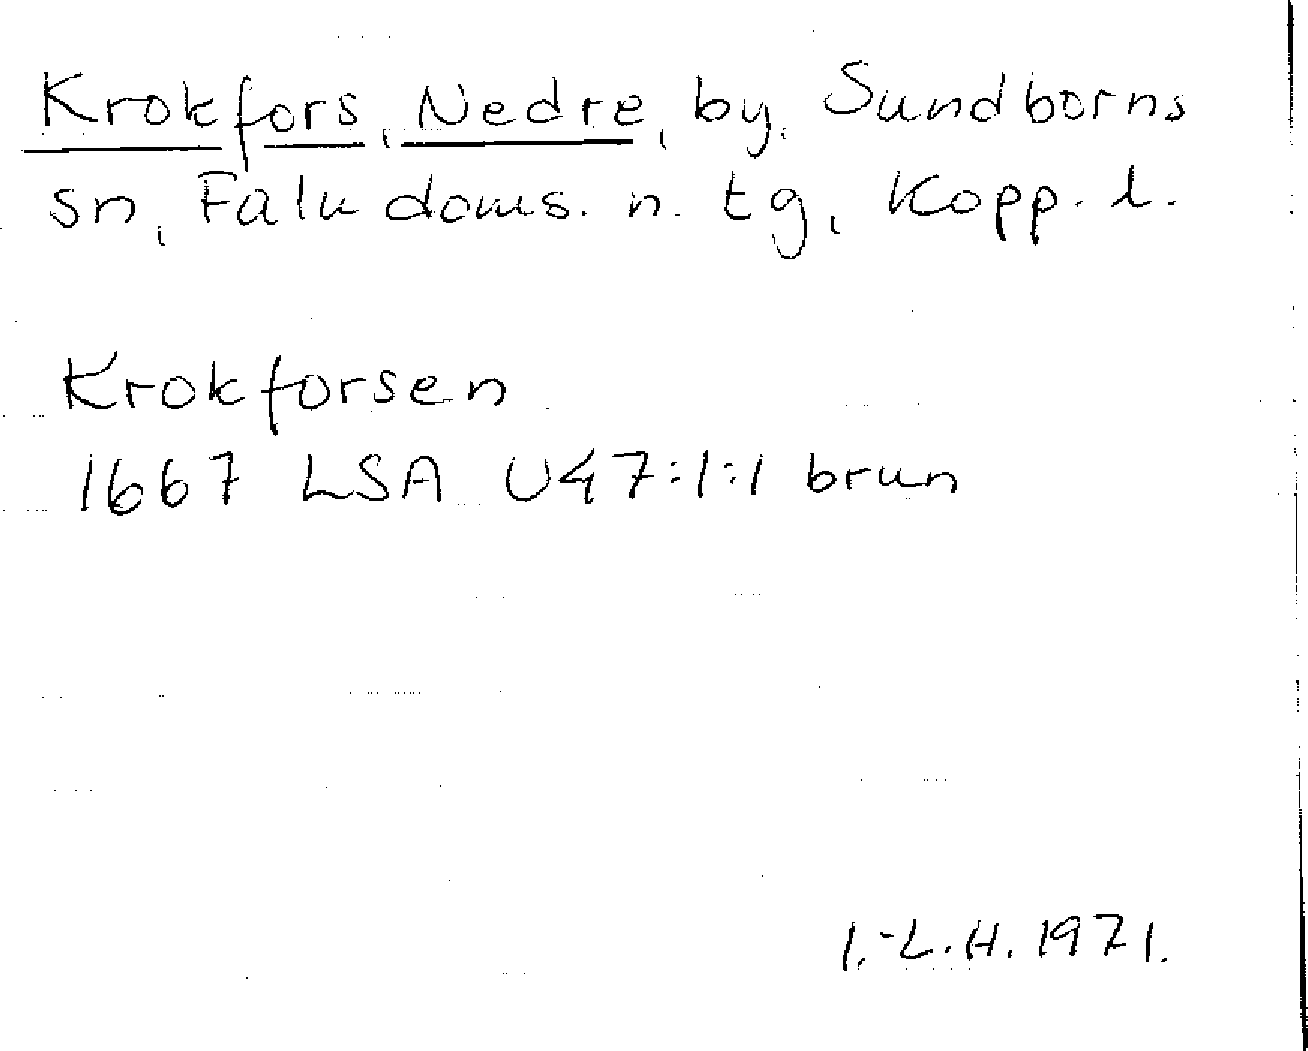 Krokfors, Nedre, by, Sundborns
sn, Falu doms. n. tg, Kopp. l.
Krokforsen
1667 LSA U47:1:1 brun
I.-L.H. 1971.